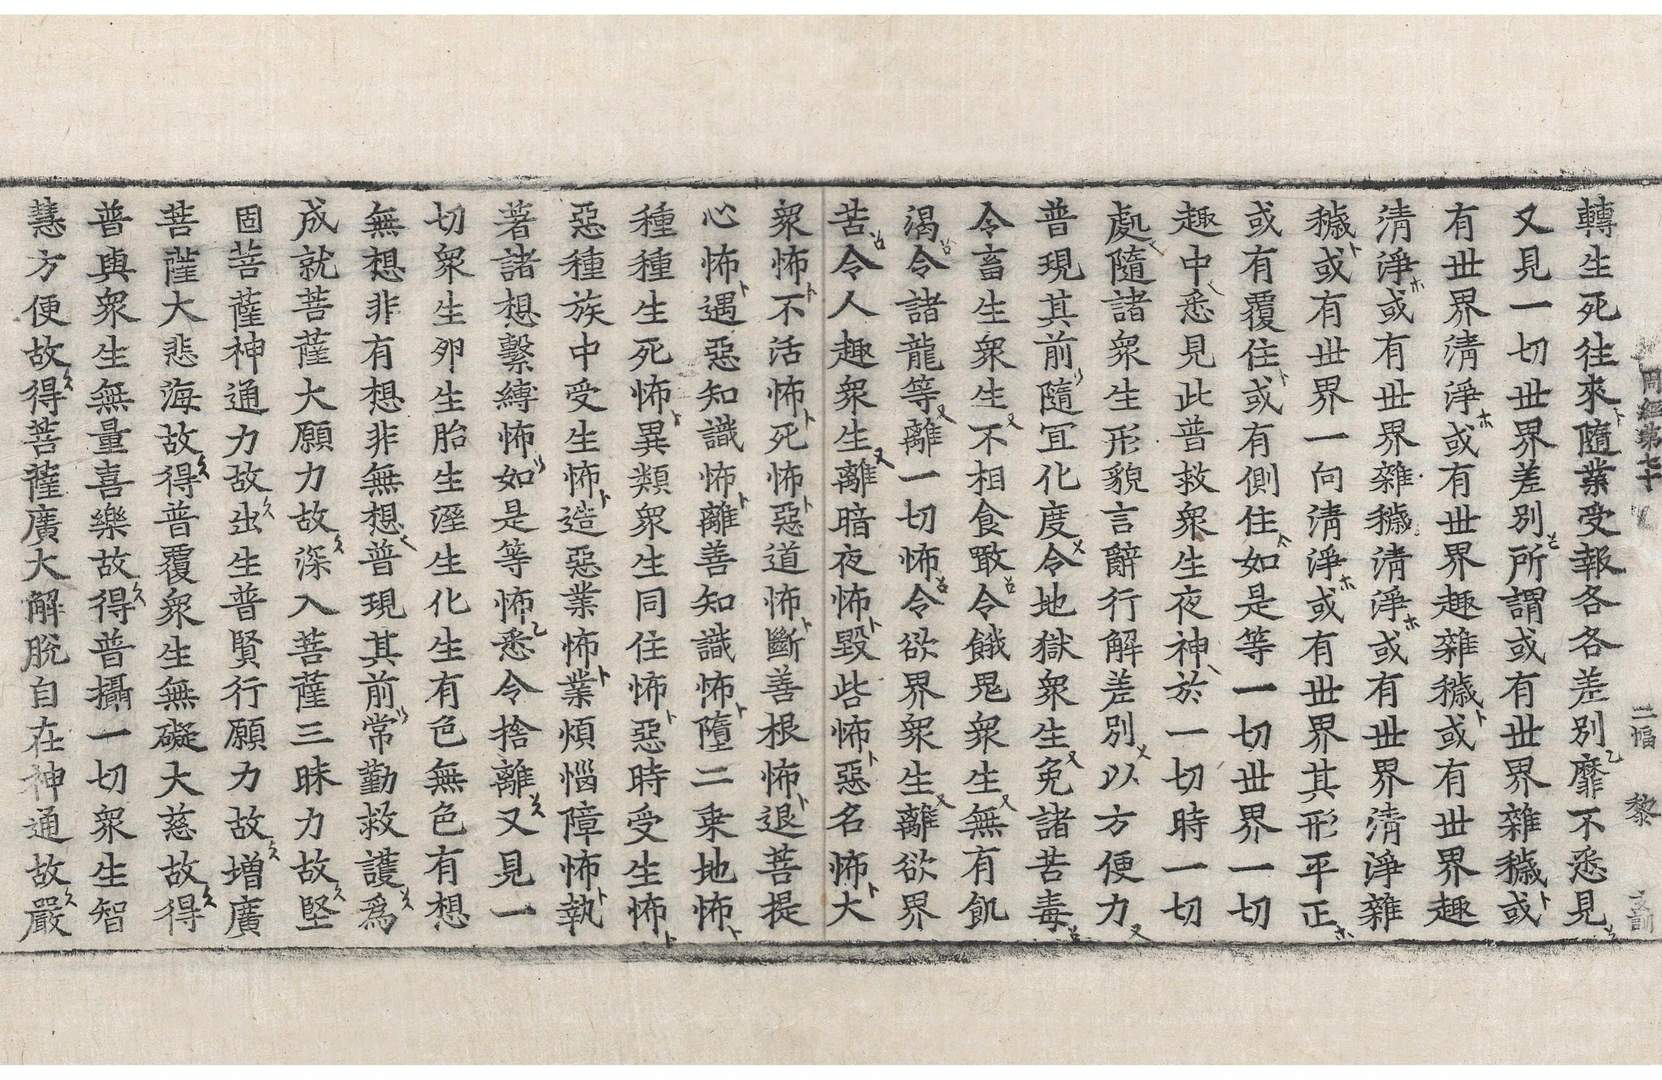 周經第七十 二幅 黎
轉生死往來隨業受報各各差別靡不悉見
又見一切世界差別所謂或有世界雜穢或
有世界清淨或有世界趣雜穢或有世界趣
清淨或有世界雜穢清淨或有世界清淨雜
穢或有世界一向清淨或有世界其形平正
或有覆住或有側住如是等一切世界一切
趣中悉見此普救衆生夜神於一切時一切
處隨諸衆生形貌言辭行解差別以方便力
普現其前隨冝化度令地獄衆生免諸苦毒
令畜生衆生不相食噉令餓鬼衆生無有飢
渴令諸龍等離一切怖令欲界衆生離欲界
苦令人趣衆生離暗夜怖毀呰怖惡名怖大
衆怖不活怖死怖惡道怖斷善根怖退菩提
心怖遇惡知識怖離善知識怖墮二乗地怖
種種生死怖異類衆生同住怖惡時受生怖
惡種族中受生怖造惡業怖業煩惱障怖執
著諸想繫縛怖如是等怖悉令捨離又見一
切衆生卵生胎生溼生化生有色無色有想
無想非有想非無想普現其前常勤救護爲
成就菩薩大願力故深入菩薩三昧力故堅
固菩薩神通力故出生普賢行願力故增廣
菩薩大悲海故得普覆衆生無礙大慈故得
普與衆生無量喜樂故得普攝一切衆生智
慧方便故得菩薩廣大解脫自在神通故嚴